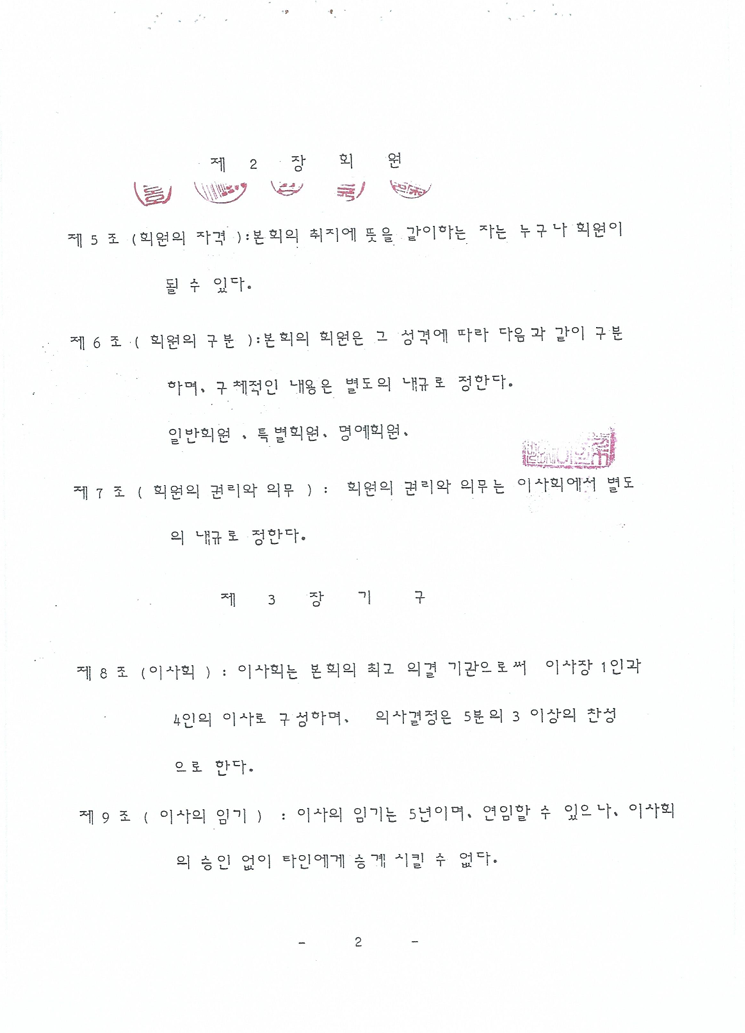 제 2 장 회 원
제 5 조 (회원의 자격 ):본회의 취지에 뜻을 같이하는 자는 누구나 회원이
될 수 있다.
제 6 조 ( 회원의 구분 ):본회의 회원은 그 성격에 따라 다음과 같이 구분
하며、구체적인 내용은 별도의 내규로 정한다.
일반회원 、특별회원、명예회원、
제 7 조 ( 회원의 권리와 의무 ) : 회원의 권리와 의무는 이사회에서 별도
의 내규로 정한다.
제 3 장 기 구
제 8 조 (이사회 ) : 이사회는 본회의 최고 의결 기관으로써 이사장 1인과
4인의 이사로 구성하며、 의사결정은 5분의 3 이상의 찬성
으로 한다.
제 9 조 ( 이사의 임기 ) : 이사의 임기는 5년이며、연임할 수 있으나、이사회
의 승인 없이 타인에게 승계 시킬 수 없다.
- 2 -